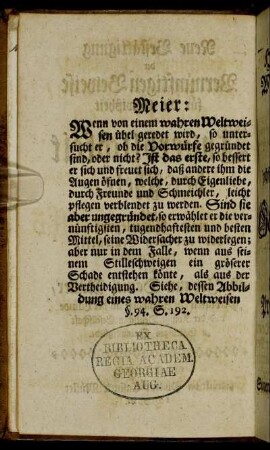 Meier:
Wenn von einem wahren Weltwei-
sen übel geredet wird, so unter-
sucht er, ob die Vorwürfe gegründet
sind, oder nicht? Ist das erste, so bessert
er sich und freuet sich, daß andere ihm die
Augen öfnen, welche, durch Eigenliebe,
durch Freunde und Schmeichler, leicht
pflegen verblendet zu werden. Sind sie
aber ungegründet, so erwählet er die ver-
nünftigsten, tugendhaftesten und besten
Mittel, seine Widersacher zu widerlegen;
aber nur in dem Falle, wenn aus sei-
nem Stillschweigen ein gröserer
Schade entstehen könte, als aus der
Vertheidigung. Siehe, dessen Abbil-
dung eines wahren Weltweisen
§. 94. S. 192.
EX
BIBLIOTHECA
REGIA ACADEM.
GEORGIAE
AUG.